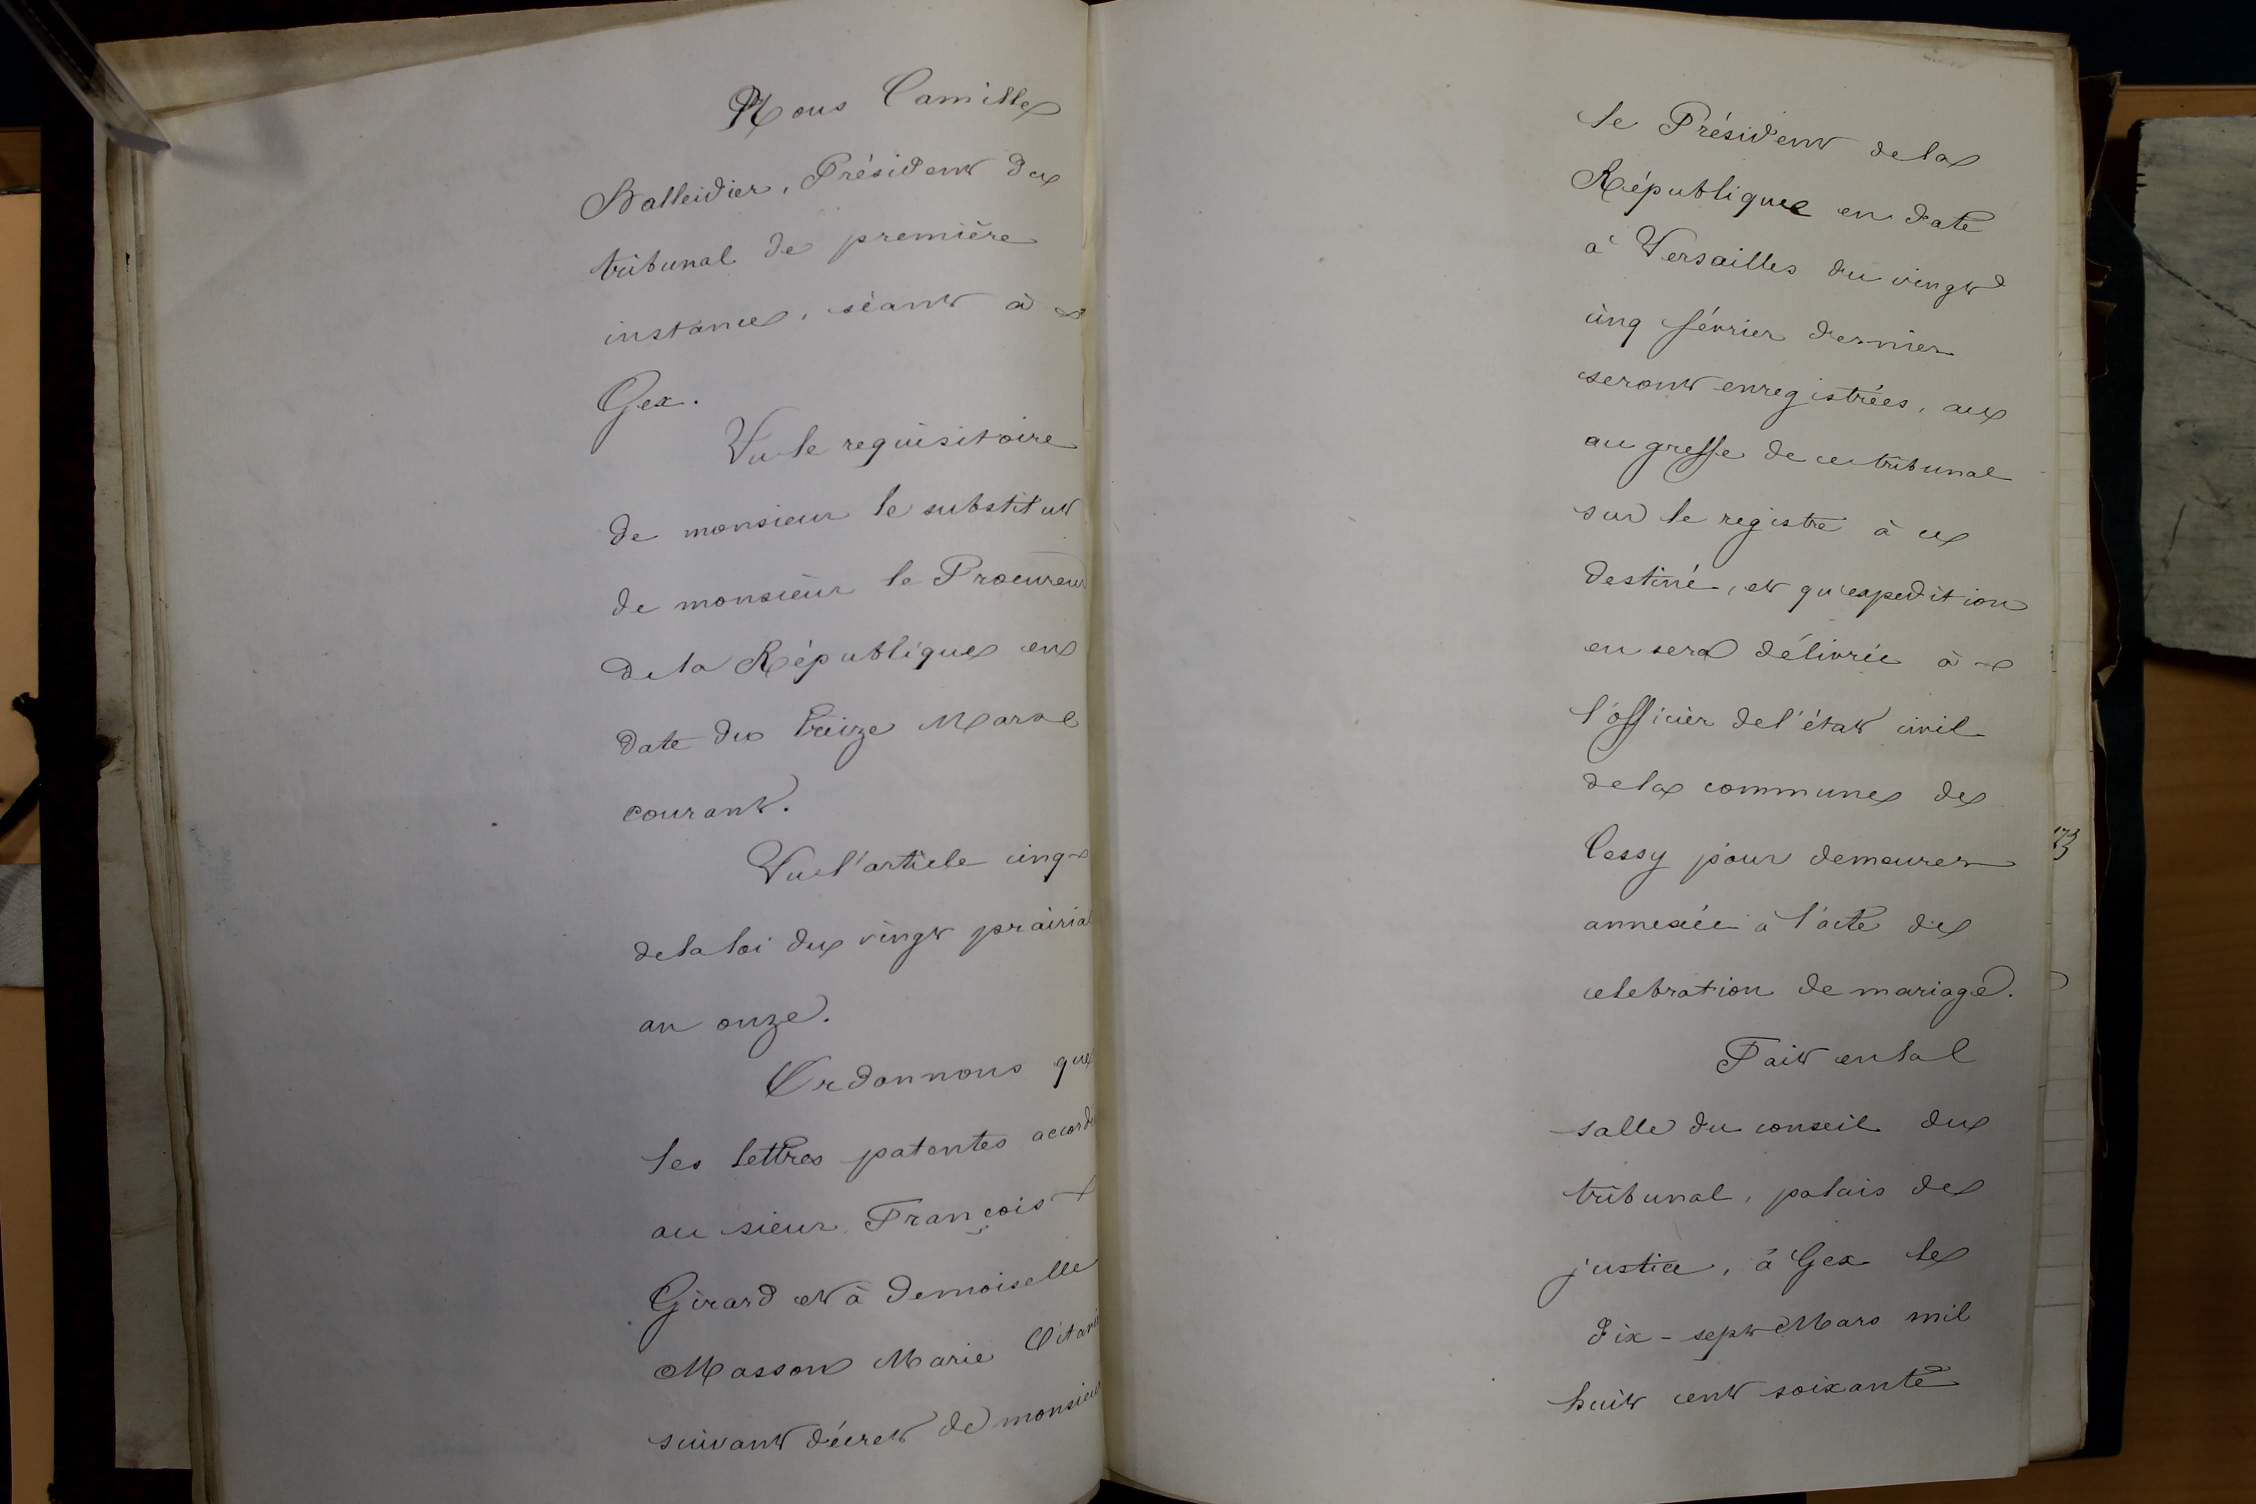 Nous Camille
Balleidier, Président du
tribunal de première
instance, séant à
Gex.
Vu le requisitoire
de monsieur le substitut
de monsieur le Procureur
de la République en
date du treize Mars
courant.
Vu l'article cinq
de la loi du vingt prairial
an onze.
Ordonnons que
les lettres patentes accordé
au sieur François
Girard et à demoiselle
Masson Marie
suivant décret de monsieur
le Président de la
République en date
à Versailles du vingt
cinq février dernier
seront enregistrées, au
au greffe de ce tribunal
sur le registre à ce
destiné, et qu'expedition
en sera délivrée à
l'officier de l'état civil
de la commune de
Cessy pour demeurer
annexée à l'acte de
celebration de mariage.
Fait en la
salle du conseil du
tribunal, palais de
justice, à Gex le
dix-sept Mars mil
huit cent soixante